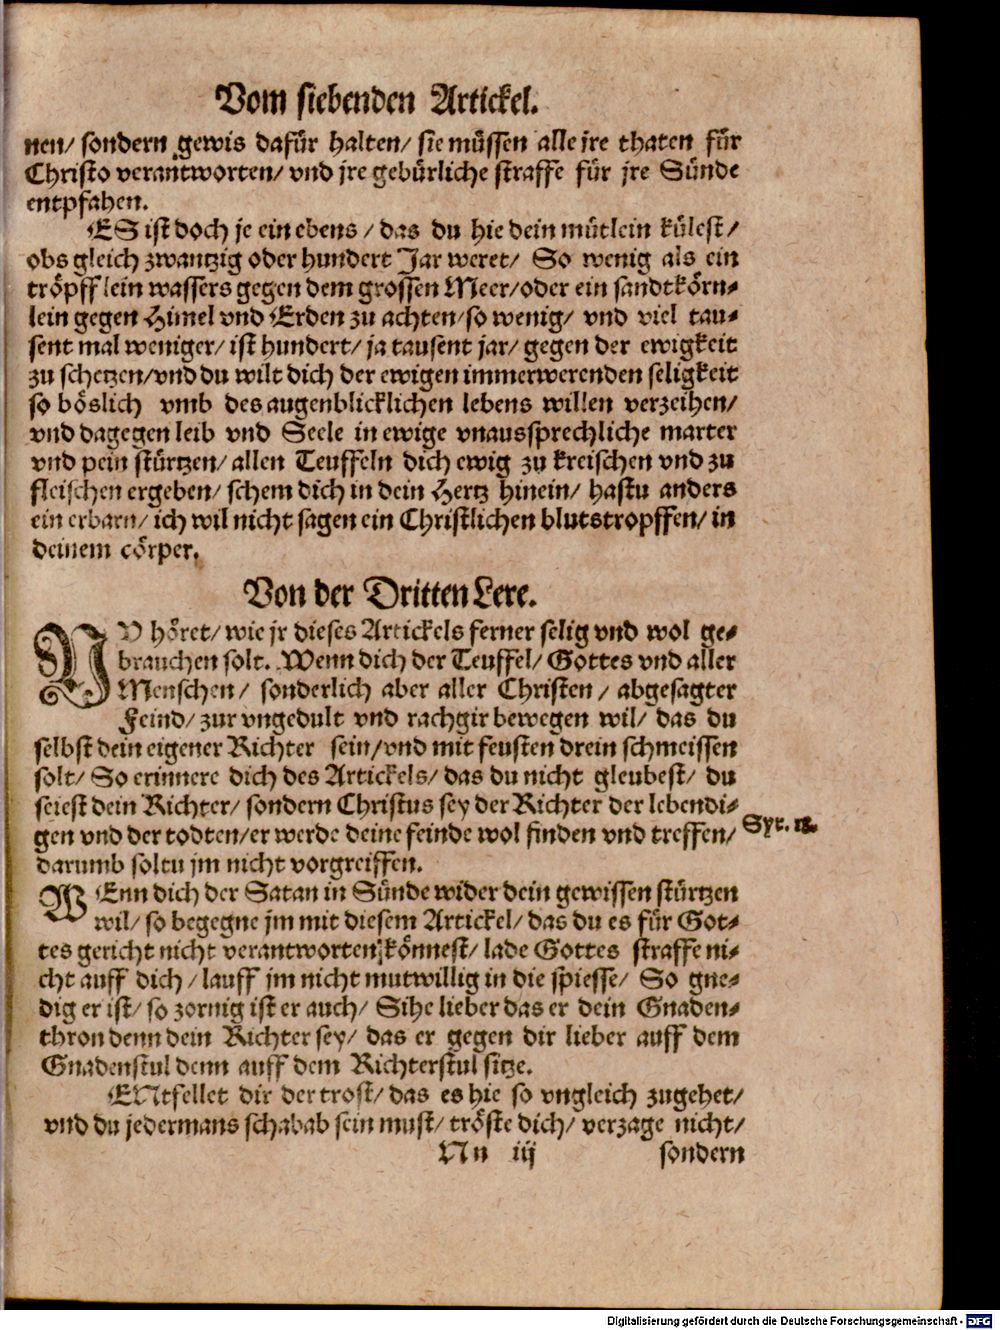 Vom siebenden Artickel.
nen/ sondern gewis dafür halten/ sie müssen alle jre thaten für
Christo verantworten/ vnd jre gebürliche straffe für jre Sünde
entpfahen.
ES ist doch je ein ebens / das du hie dein mütlein külest/
obs gleich zwantzig oder hundert Jar weret/ So wenig als ein
tröpfflein wassers gegen dem grossen Meer/oder ein sandtkörn-
lein gegen Himel vnd Erden zu achten/so wenig/ vnd viel tau-
sent mal weniger/ ist hundert/ ja tausent jar/ gegen der ewigkeit
zu schetzen/vnd du wilt dich der ewigen immerwerenden seligkeit
so böslich vmb des augenblicklichen lebens willen verzeihen/
vnd dagegen leib vnd Seele in ewige vnaussprechliche marter
vnd pein stürtzen/ allen Teuffeln dich ewig zu kreischen vnd zu
fleischen ergeben/ schem dich in dein Hertz hinein/ hastu anders
ein erbarn/ ich wil nicht sagen ein Christlichen blutstropffen/ in
deinem cörper.
Von der Dritten Lere.
NV höret/ wie jr dieses Artickels ferner selig vnd wol ge-
brauchen solt. Wenn dich der Teuffel/ Gottes vnd aller
Menschen/ sonderlich aber aller Christen / abgesagter
Feind/ zur vngedult vnd rachgir bewegen wil/ das du
selbst dein eigener Richter sein/vnd mit feusten drein schmeissen
solt/ So erinnere dich des Artickels/ das du nicht gleubest/ du
seiest dein Richter/ sondern Christus sey der Richter der lebendi-
gen vnd der todten/er werde deine feinde wol finden vnd treffen/ Syr. 18.
darumb soltu jm nicht vorgreiffen.
WEnn dich der Satan in Sünde wider dein gewissen stürtzen
wil/ so begegne jm mit diesem Artickel/ das du es für Got-
tes gericht nicht verantworten könnest/ lade Gottes straffe ni-
cht auff dich / lauff jm nicht mutwillig in die spiesse/ So gne-
dig er ist/ so zornig ist er auch/ Sihe lieber das er dein Gnaden-
thron denn dein Richter sey/ das er gegen dir lieber auff dem
Gnadenstul denn auff dem Richterstul sitze.
ENtfellet dir der trost/ das es hie so vngleich zugehet/
vnd du jedermans schabab sein must/ tröste dich/ verzage nicht/
Nn iij sondern
Digitalisierung gefördert durch die Deutsche Forschungsgemeinschaft - DFG